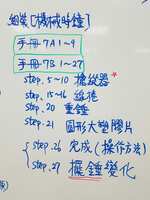 組裝[機械時鐘]
手冊7A1~9
手冊7B1~27
step.5~10 擒縱器*
step.15~16 線捲
step.20 重錘
step.21 圓形大塑膠片
step.26 完成(操作方法)
step.27 擺錘變化